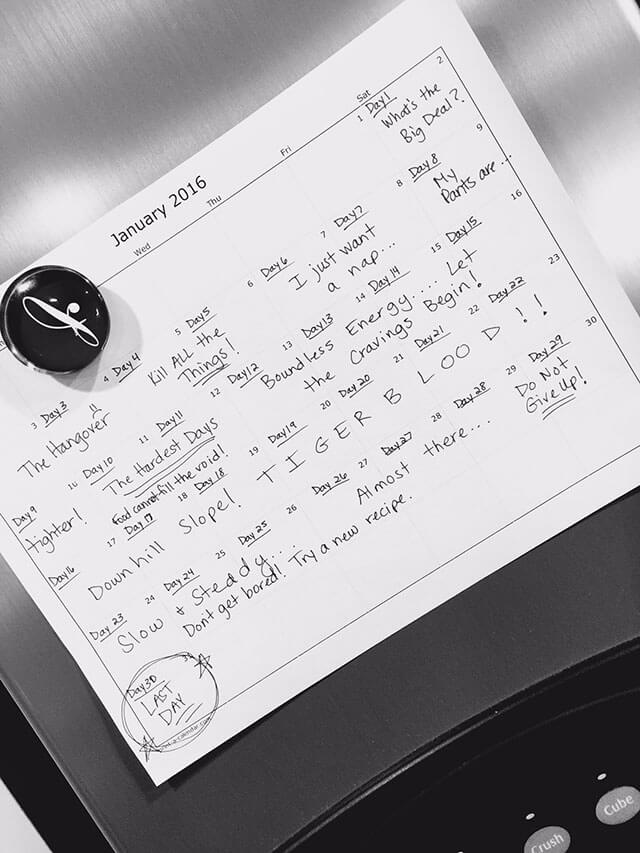 January 2016
Wed Thu Fri Sat
1 Day 1 2
What's the
Big Deal?
3 Day 3 4 Day 4 5 Day 5 6 Day 6 7 Day 7 8 Day 8 9
The Hangover
Kill ALL the
Things!
I just want
a nap...
My
Pants are...
Day 9 10 Day 10 11 Day 11 12 Day 12 13 Day 13 14 Day 14 15 Day 15 16
tighter!
The Hardest Days
Food cannot fill the void!
Boundless Energy.... Let
the Cravings Begin!
Day 16 17 Day 17 18 Day 18 19 Day 19 20 Day 20 21 Day 21 22 Day 22 23
Downhill Slope!
TIGER BLOOD!!
Day 23 24 Day 24 25 Day 25 26 Day 26 27 Day 27 28 Day 28 29 Day 29 30
Slow & Steady....
Don't get bored! Try a new recipe.
Almost there....
Do Not
Give Up!
Day 30
LAST
DAY
Crush
Cube